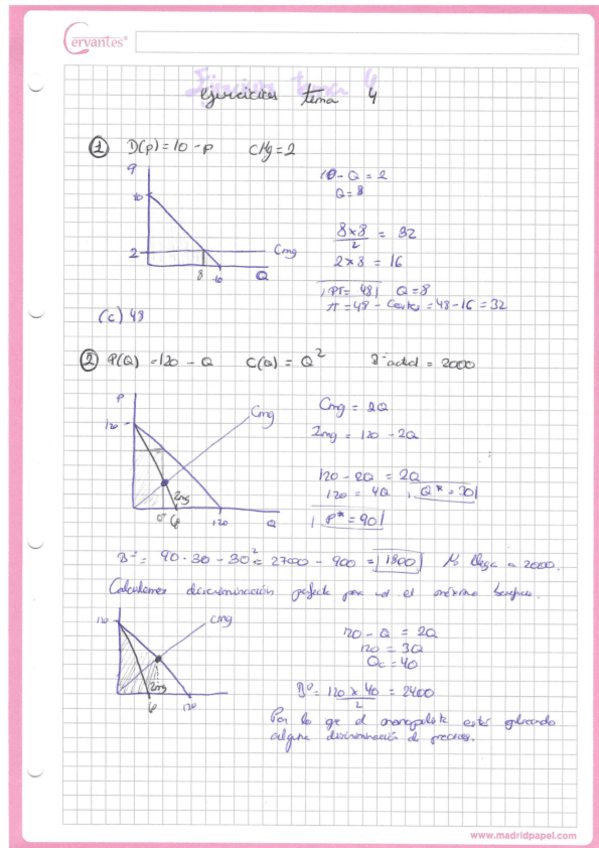 Cervantes
ejercicios tema 4
① D(p)=10-p CMg=2
q
10
2
Cmg
8
10
Q
10-Q = 2
Q=8
8×8/2 = 32
2×8 = 16
IPT= 48 Q=8
π = 48 - Costes = 48-16 = 32
(c) 48
② P(Q) = 120 - Q C(Q) = Q² Bº actual = 2000
P
120
Cmg
Img
120
Q
Cmg = 2Q
Img = 120 - 2Q
120 - 2Q = 2Q
120 = 4Q, Q* = 30
P* = 90
Bº = 90·30 - 30² = 2700 - 900 = 1800 No llega a 2000.
Calculamos discriminación perfecta para ver el máximo beneficio.
120
Cmg
Img
120
120 - Q = 2Q
120 = 3Q
Qc = 40
Bº = 120 × 40/2 = 2400
Por lo que el monopolista está aplicando
alguna discriminación de precios.
www.madridpapel.com